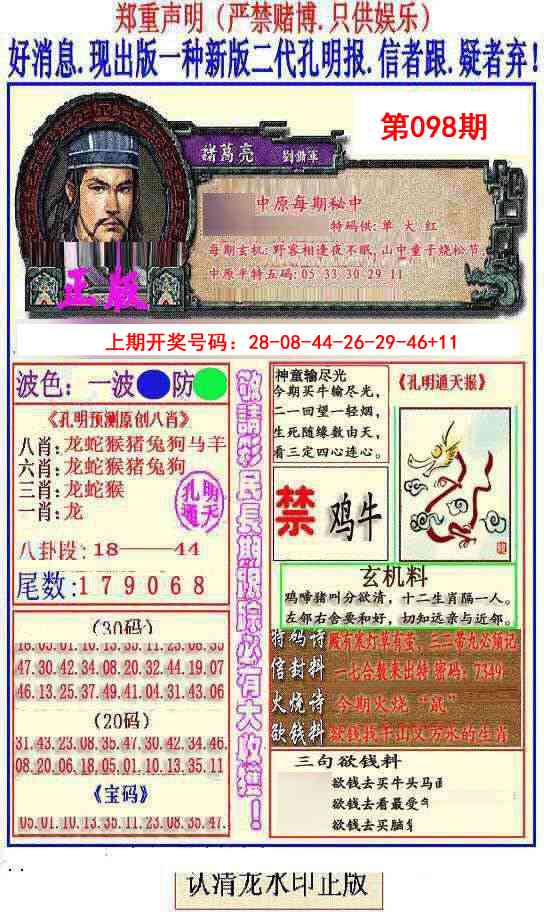 郑重声明（严禁赌博.只供娱乐）
好消息.现出版一种新版二代孔明报.信者跟.疑者弃!
第098期
諸葛亮
中原每期秘中
特码供:单 大 红
每期玄机:野客相逢夜不眠,山中童子烧松节.
中原平特五码:05 33 30 29 11
正版
上期开奖号码：28-08-44-26-29-46+11
波色：一波 防
《孔明预测原创八肖》
八肖:龙蛇猴猪兔狗马羊
六肖:龙蛇猴猪兔狗
三肖:龙蛇猴
一肖:龙
孔明
通天
八卦段:18——44
尾数:179068
(30码)
47.30.42.34.08.20.32.44.19.07
46.13.25.37.49.41.04.31.43.06
(20码)
31.43.23.08.35.47.30.42.34.46.
08.20.06.18.05.01.10.13.35.11
《宝码》
05.01.10.13.35.11.23.08.35.47.
敬請彩民長期跟踪必有大收獲！
神童输尽光
今期买牛输尽光，
二一回望一轻烟，
生死随缘数由天，
看三定四心连心。
《孔明通天报》
禁 鸡牛
玄机料
鸡啼猪叫分欲清，十二生肖隔一人。
左邻右舍要和好，切知远亲与近邻。
特码诗
信封料 一七合数来出特 密码：7349
火烧诗 今期火烧“鼠”
欲钱料 欲钱找千山又万水的生肖
三句欲钱料
欲钱去买牛头马面
欲钱去看最受
欲钱去买脑
认清龙水印正版